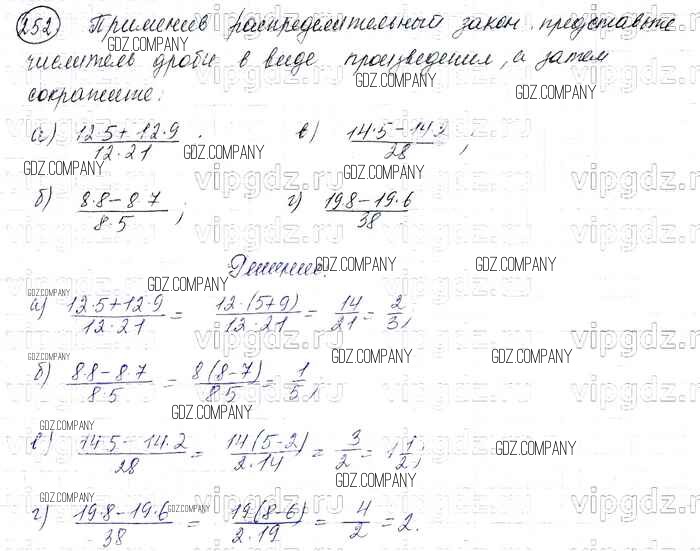 252 Применив распределительный закон, представьте
числитель дроби в виде произведения, а затем
сократите:
а) (12·5+12·9)/(12·21) ; в) (14·5-14·2)/28 ;
б) (8·8-8·7)/(8·5) ; г) (19·8-19·6)/38
Решение.
а) (12·5+12·9)/(12·21) = (12·(5+9))/(12·21) = 14/21 = 2/3;
б) (8·8-8·7)/(8·5) = (8(8-7))/(8·5) = 1/5;
в) (14·5-14·2)/28 = (14(5-2))/(2·14) = 3/2 = 1 1/2;
г) (19·8-19·6)/38 = (19(8-6))/(2·19) = 4/2 = 2.
GDZ.COMPANY
vipgdz.ru